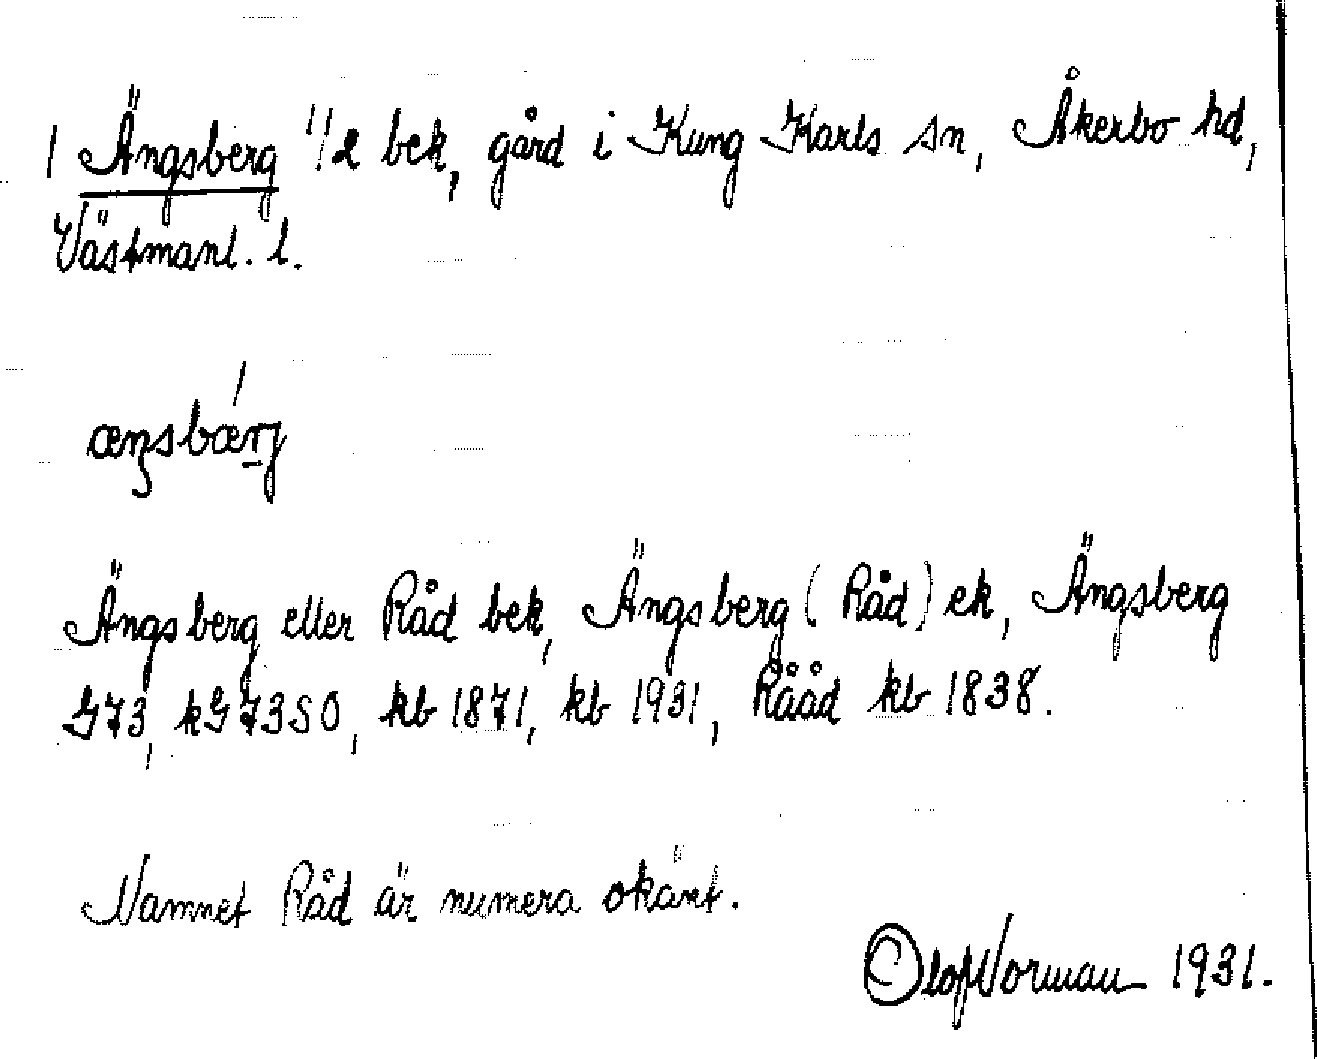 1 Ängsberg 1/2 bek, gård i Kung Karls sn, Åkerbo hd,
Västmanl. l.
Ängsberg eller Råd bek, Ängsberg (Råd) ek, Ängsberg
G73, kG73SO, kb 1871, kb 1931, Rååd kb 1838.
Namnet Råd är numera okänt.
Olof Norman 1931.